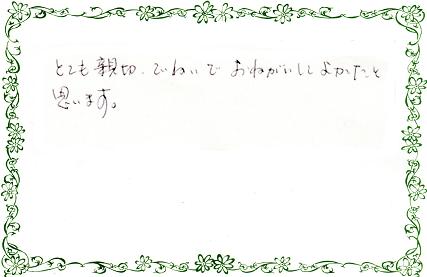 とても親切、ていねいで おねがいしてよかったと
思います。